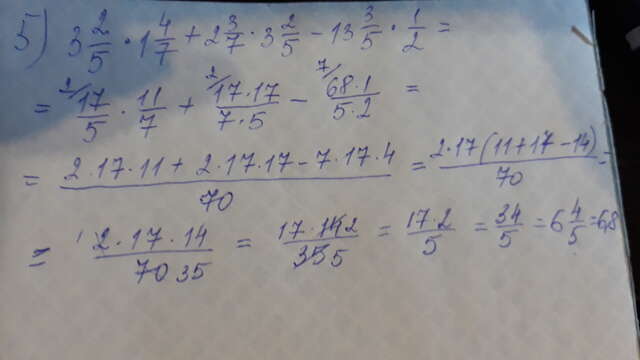 5) 3 2/5 · 1 4/7 + 2 3/7 · 3 2/5 − 13 3/5 · 1/2 =
= 17/5 · 11/7 + 17·17/7·5 − 68·1/5·2 =
= 2·17·11 + 2·17·17 − 7·17·4/70 = 2·17(11+17−14)/70 =
= 2·17·14/70 35 = 17·14 2/35 5 = 17·2/5 = 34/5 = 6 4/5 = 6,8